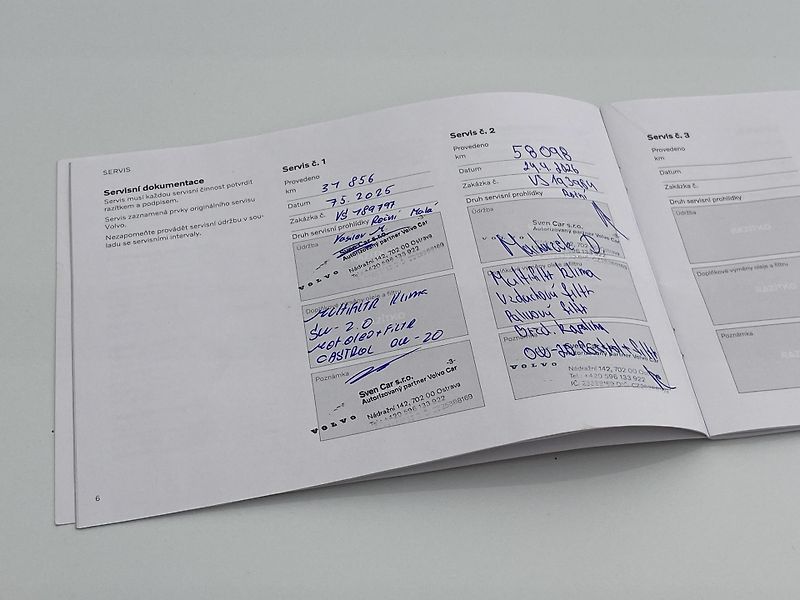 SERVIS
Servisní dokumentace
Servis musí každou servisní činnost potvrdit
razítkem a podpisem.
Servis zaznamená prvky originálního servisu
Volvo.
Nezapomeňte provádět servisní údržbu v sou-
ladu se servisními intervaly.
6
Servis č. 1
Provedeno
km 31 856
Datum 7.5.2025
Zakázka č. VS 189797
Druh servisní prohlídky Roční Malá
Údržba
Sven Car s.r.o.
Autorizovaný partner Volvo Car
Nádražní 142, 702 00 Ostrava
Tel.: +420 596 133 922
VOLVO
Doplňkové výměny oleje a filtru
MULTIFILTR Klima
SW - 2.0
MOT OLEJ + FILTR
CASTROL OW-20
Poznámka
-3-
Sven Car s.r.o.
Autorizovaný partner Volvo Car
Nádražní 142, 702 00 Ostrava
Tel.: +420 596 133 922
VOLVO
Servis č. 2
Provedeno
km 58 098
Datum 24.4.2026
Zakázka č.
Druh servisní prohlídky Roční
Údržba
Sven Car s.r.o.
Autorizovaný partner Volvo Car
Nádražní 142, 702 00 Ostrava
Multifiltr klima
Vzduchový filtr
Pilový filtr
Brzd. Kapalina
VOLVO
Nádražní 142, 702 00 Ostrava
Tel.: +420 596 133 922
Servis č. 3
Provedeno
km
Datum
Zakázka č.
Druh servisní prohlídky
Údržba
Doplňkové výměny oleje a filtru
Poznámka